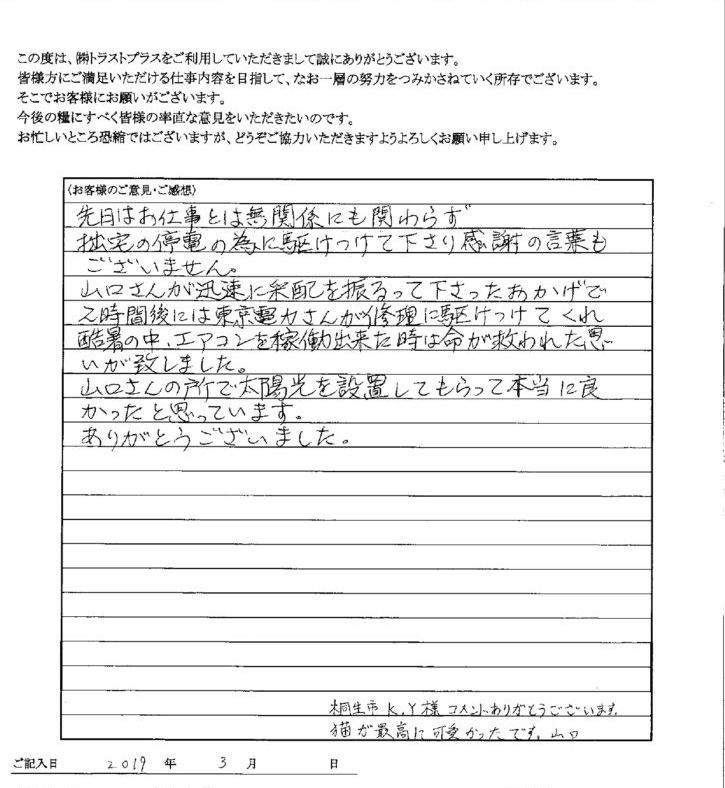 この度は、㈱トラストプラスをご利用していただきまして誠にありがとうございます。
皆様方にご満足いただける仕事内容を目指して、なお一層の努力をつみかさねていく所存でございます。
そこでお客様にお願いがございます。
今後の糧にすべく皆様の率直な意見をいただきたいのです。
お忙しいところ恐縮ではございますが、どうぞご協力いただきますようよろしくお願い申し上げます。
〈お客様のご意見・ご感想〉
先日はお仕事とは無関係にも関わらず
拙宅の停電の為に駆けつけて下さり感謝の言葉も
ございません。
山口さんが迅速に采配を振るって下さったおかげで
2時間後には東京電力さんが修理に駆けつけてくれ
酷暑の中、エアコンを稼働出来た時は命が救われた思
いが致しました。
山口さんの所で太陽光を設置してもらって本当に良
かったと思っています。
ありがとうございました。
桐生市 K.Y様 コメントありがとうございます。
猫が最高に可愛かったです。山口
ご記入日 2019 年 3 月 日